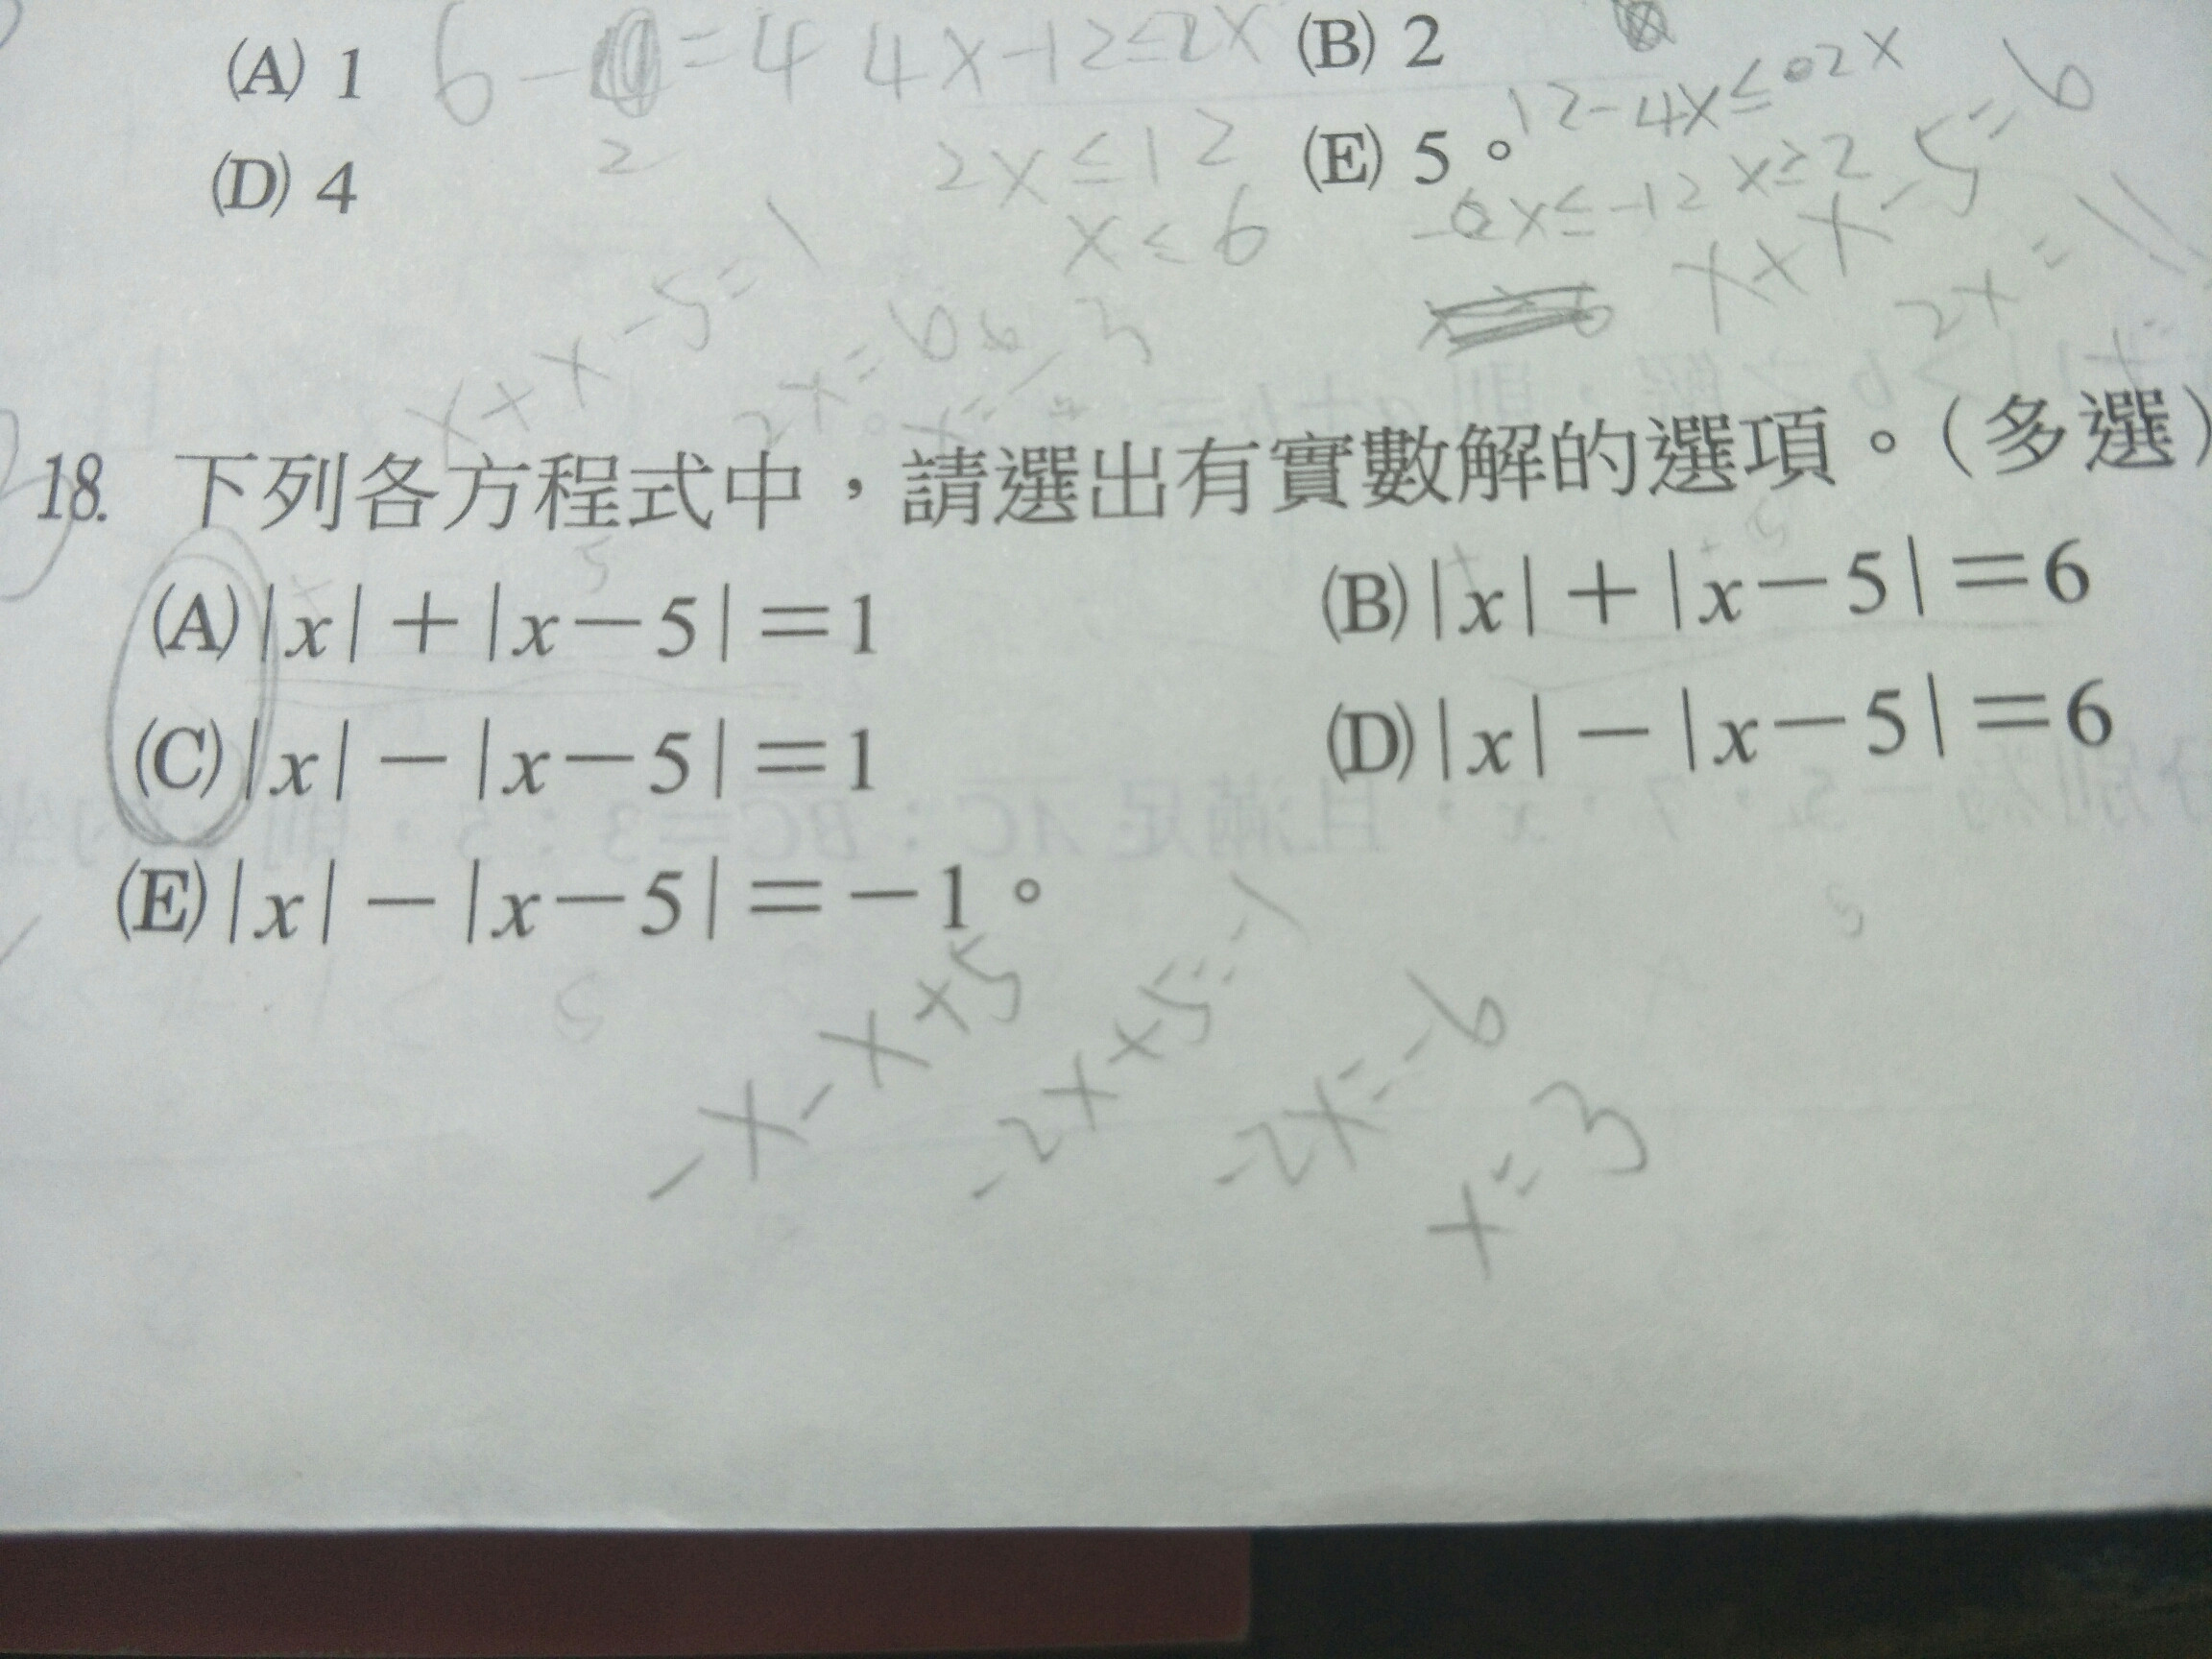 (A) 1 (B) 2
6 - = 4 4x-12≤2x
12-4x≤02x
(D) 4 (E) 5。
2
2x≤12
x≤6
-6x≤-12 x≥2
x+x-5=6
2x=11
x+x-5=1
2x=6 x=3
18. 下列各方程式中，請選出有實數解的選項。(多選)
(A)|x|+|x-5|=1 (B)|x|+|x-5|=6
(C)|x|-|x-5|=1 (D)|x|-|x-5|=6
(E)|x|-|x-5|=-1。
-x-x+5
-2x+5=-1
-2x=-6
x=3